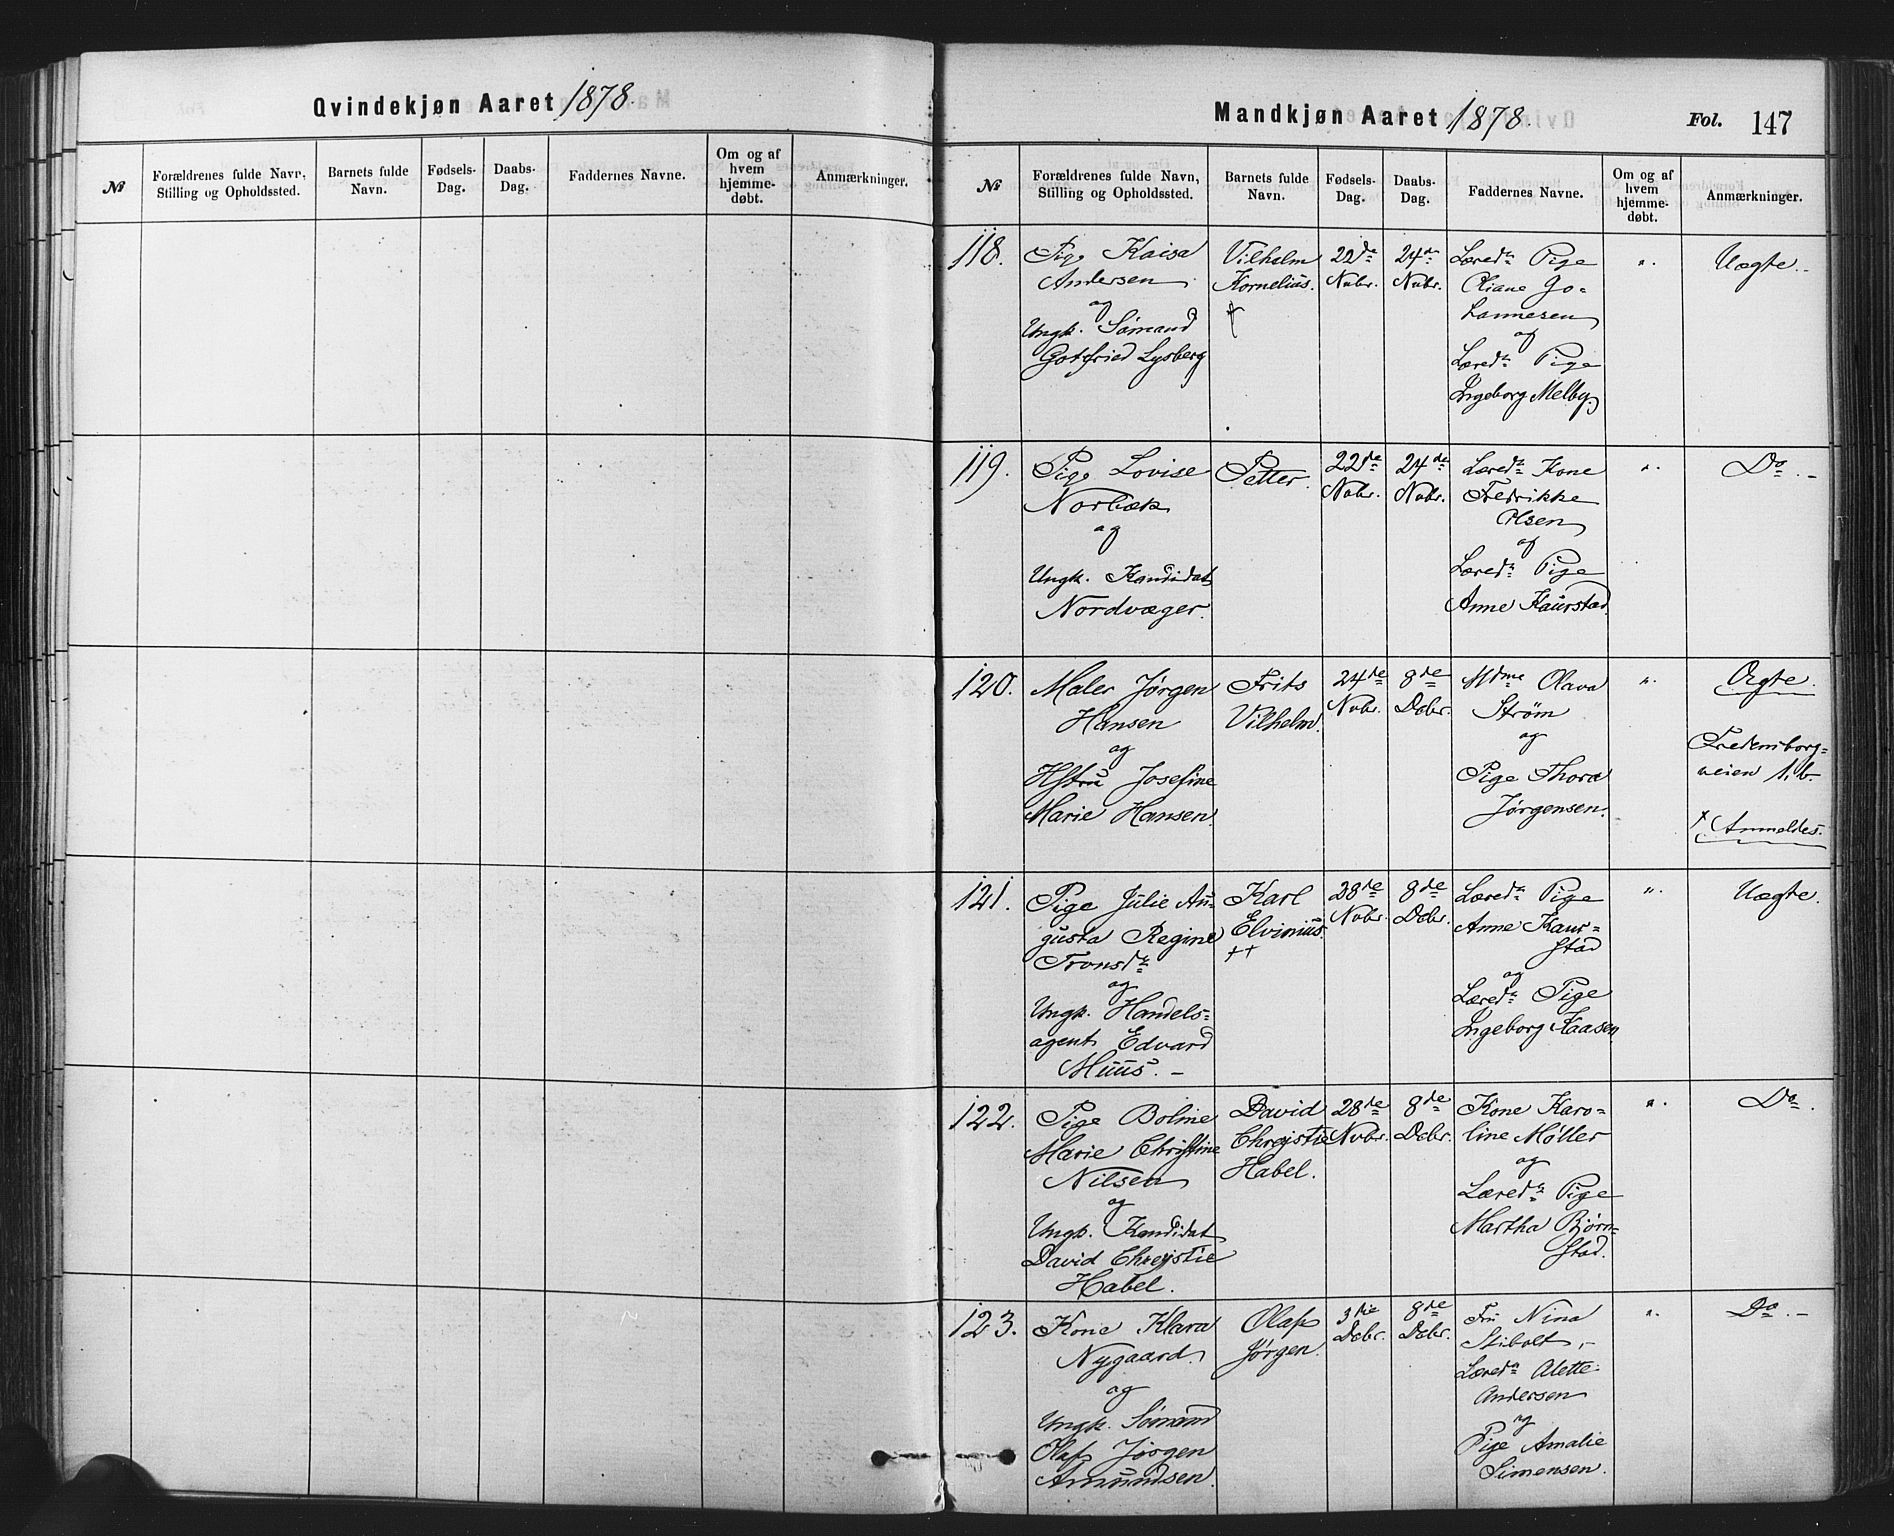 Qvindekjøn Aaret 1878.
№
Forældrenes fulde Navn,
Stilling og Opholdssted.
Barnets fulde
Navn.
Fødsels-
Dag.
Daabs-
Dag.
Faddernes Navne.
Om og af
hvem
hjemme-
døbt.
Anmærkninger.
Mandkjøn Aaret 1878.
Fol. 147
№
Forældrenes fulde Navn,
Stilling og Opholdssted.
Barnets fulde
Navn.
Fødsels-
Dag.
Daabs-
Dag.
Faddernes Navne.
Om og af
hvem
hjemme-
døbt.
Anmærkninger.
118.
Pige Kaisa
Andersen
og
Ungk. Sømand
Gotfried Lysberg
Vilhelm
Kornelius.
†
22de
Nvbr.
24de
Nvbr.
Læred: Pige
Oliane Jo-
hannesen
og
Læred: Pige
Ingeborg Melby.
".
Uægte.-
119.
Pige Lovise
Norbæk
og
Ungk. Kandidat
Nordvæger.
Petter.
22de
Nvbr.
24de
Nvbr.
Læred: Kone
Fredrikke
Olsen
og
Læred: Pige
Anne Kaurstad.
".
Do. -
120.
Maler Jørgen
Hansen
og
Hstru Josefine
Marie Hansen.
Frits
Vilhelm.
24de
Nvbr.
8de
Dcbr.
Mdme Olava
Strøm
og
Pige Thora
Jørgensen.
".
Ægte.
Fredensborg=
veien 1. b.
† Anmeldes.
121.
Pige Julie Au-
gusta Regine
Tronsd:
og
Ungk. Handels=
agent Edvard
Muus. -
Karl
Elvinius.
††
28de
Nvbr.
8de
Dcbr.
Læred: Pige
Anne Kaur=
stad
og
Læred: Pige
Ingeborg Kaasen
".
Uægte.
122.
Pige Boline
Marie Christine
Nilsen
og
Ungk. Kandidat
David Chrejstie
Habel.
David
Chrejstie
Habel.
28de
Nvbr.
8de
Dcbr.
Kone Karo-
line Møller
og
Læred: Pige
Martha Bjørn=
stad.
".
Do.
123.
Kone Klara
Nygaard
og
Ungk. Sømand
Olaf Jørgen
Amundsen.
Olaf
Jørgen.
3die
Dcbr.
8de
Dcbr.
Fru Nina
Stibolt,-
Læred: Alette
Andersen
og
Pige Amalie
Simensen.
".
Do. -